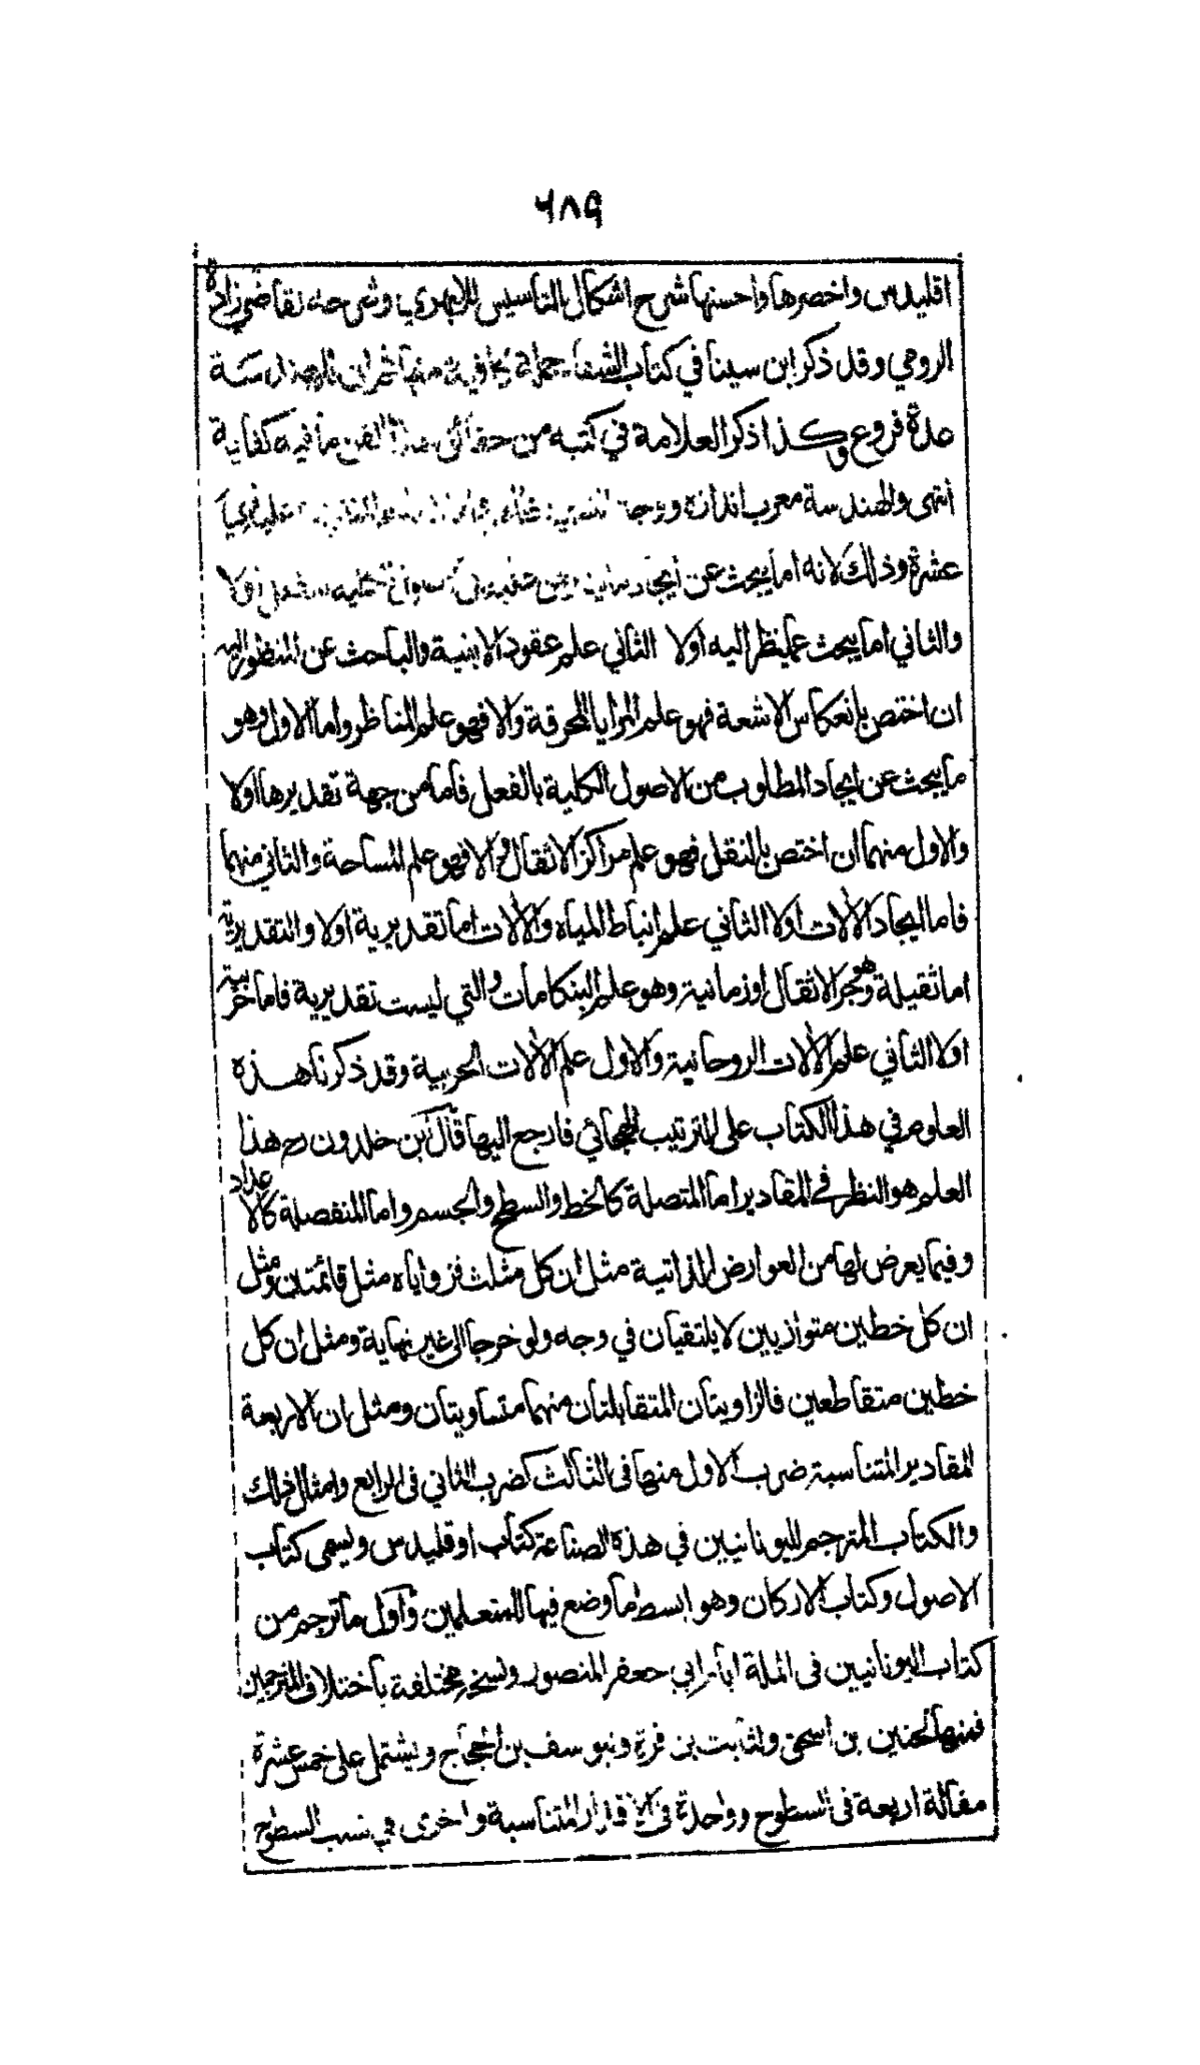 ٦٨٩
اقليدس واخصرها واحسنها شرح اشكال التاسيس للابهري وشرحه لقاضي زاده
الرومي وقد ذكر ابن سينا في كتاب الشفاء جملة كافية منها ثم ان للهندسة
عدة فروع وكذا ذكر العلامة في كتبه من حقائق هذا الفن ما فيه كفاية
انتهى والهندسة معرب اندازه ووجه
عشرة وذلك لانه اما يبحث عن ايجاد
والثاني اما يبحث عما ينظر اليه اولا الثاني علم عقود الابنية والباحث عن المنظور اليه
ان اختص بانعكاس الاشعة فهو علم المرايا المحرقة والا فهو علم المناظر واما الاول وهو
ما يبحث عن ايجاد المطلوب من الاصول الكلية بالفعل فاما من جهة تقديرها اولا
والاول منهما ان اختص بالنقل فهو علم مراكز الاثقال والا فهو علم المساحة والثاني منهما
فاما ايجاد الالات اولا الثاني علم انباط المياه والالات اما تقديرية اولا والتقديرية
اما ثقيلة وهو جر الاثقال او زمانية وهو علم البنكامات والتي ليست تقديرية فاما حربية
اولا الثاني علم الالات الروحانية والاول علم الالات الحربية وقد ذكرنا هذه
العلوم في هذا الكتاب على الترتيب الهجائي فارجع اليها قال ابن خلدون رح هذا
العلم هو النظر في المقادير اما المتصلة كالخط والسطح والجسم واما المنفصلة كالاعداد
وفيما يعرض لها من العوارض الذاتية مثل ان كل مثلث فزواياه مثل قائمتين ومثل
ان كل خطين متوازيين لا يلتقيان في وجه ولو خرجا الى غير نهاية ومثل ان كل
خطين متقاطعين فالزاويتان المتقابلتان منهما متساويتان ومثل ان الاربعة
المقادير المتناسبة ضرب الاول منها فى الثالث كضرب الثاني فى الرابع وامثال ذلك
والكتاب المترجم لليونانيين في هذه الصناعة كتاب اوقليدس ويسمى كتاب
الاصول وكتاب الاركان وهو ابسط ما وضع فيها للمتعلمين واول ما ترجم من
كتاب اليونانيين فى الملة ايام ابي جعفر المنصور ونسخه مختلفة باختلاف المترجمين
فمنها لحنين بن اسحق ولثابت بن قرة وليوسف بن الحجاج ويشتمل على خمس عشرة
مقالة اربعة فى السطوح وواحدة فى الاقدار المتناسبة واخرى في نسب السطوح